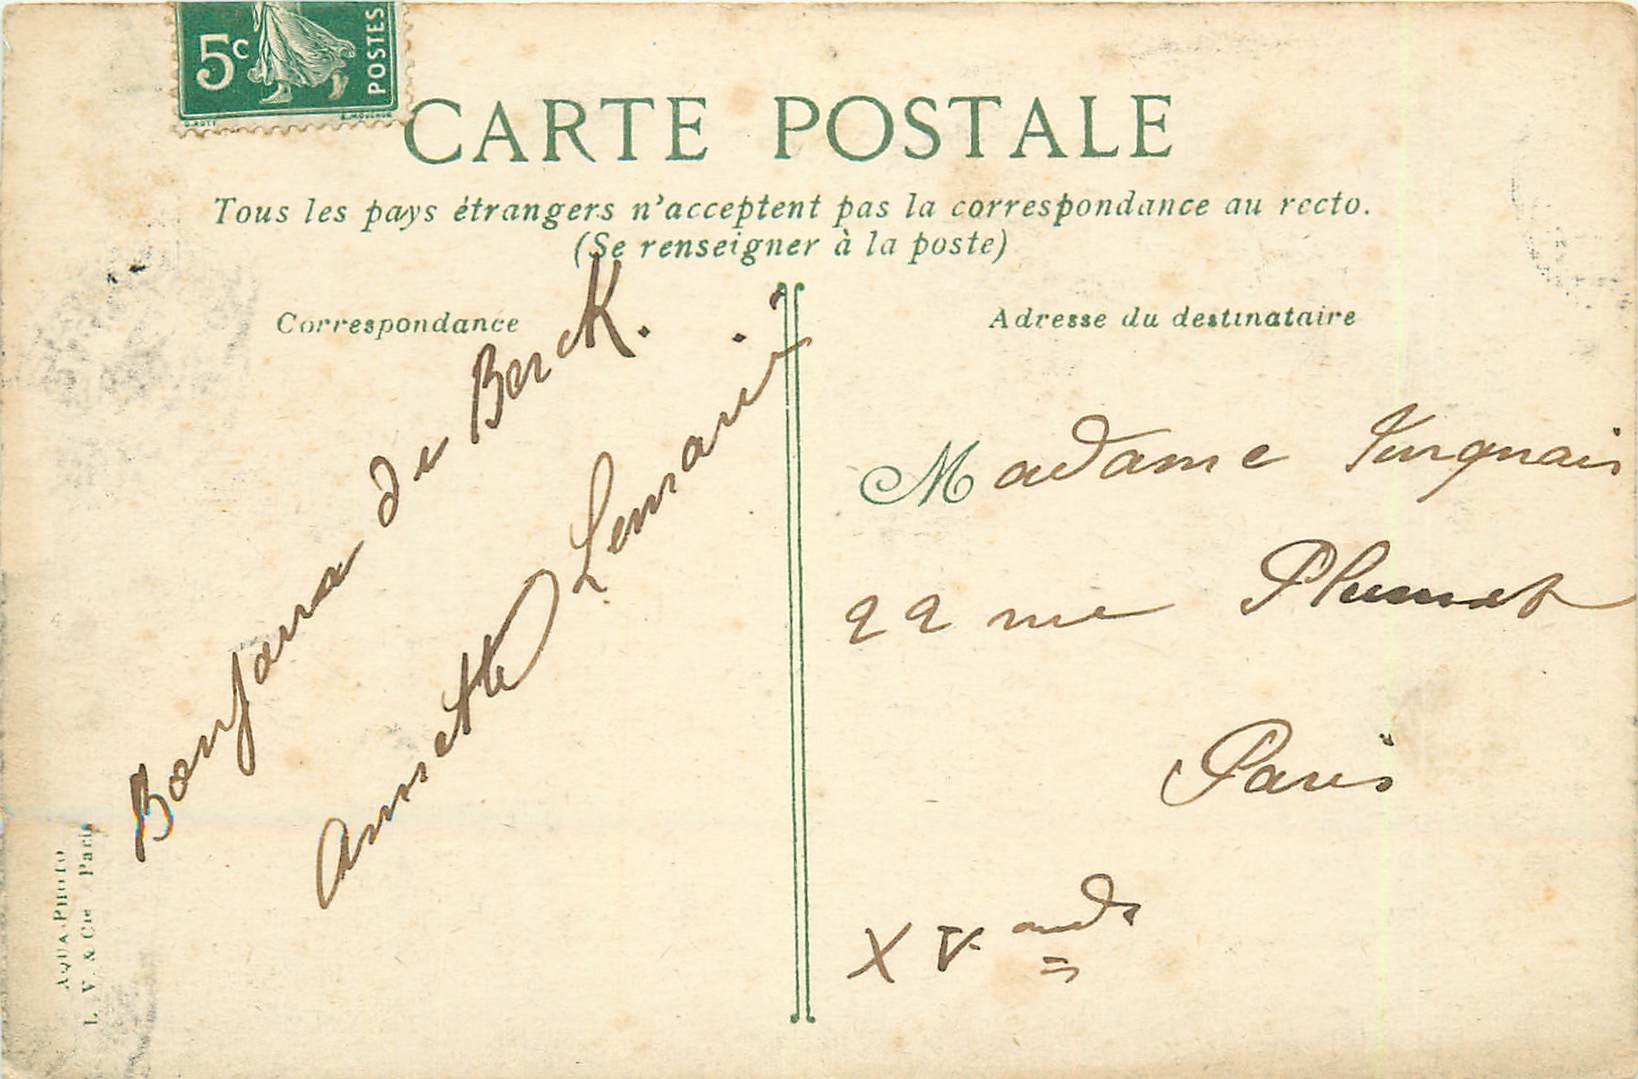 5c
POSTES
CARTE POSTALE
Tous les pays étrangers n'acceptent pas la correspondance au recto.
(Se renseigner à la poste)
Correspondance
Adresse du destinataire
Bonjours de Berck.
Annette Lemaire
Madame
22 rue Plumet
Paris
XV
AQUA-PHOTO
L. V. & Cie Paris